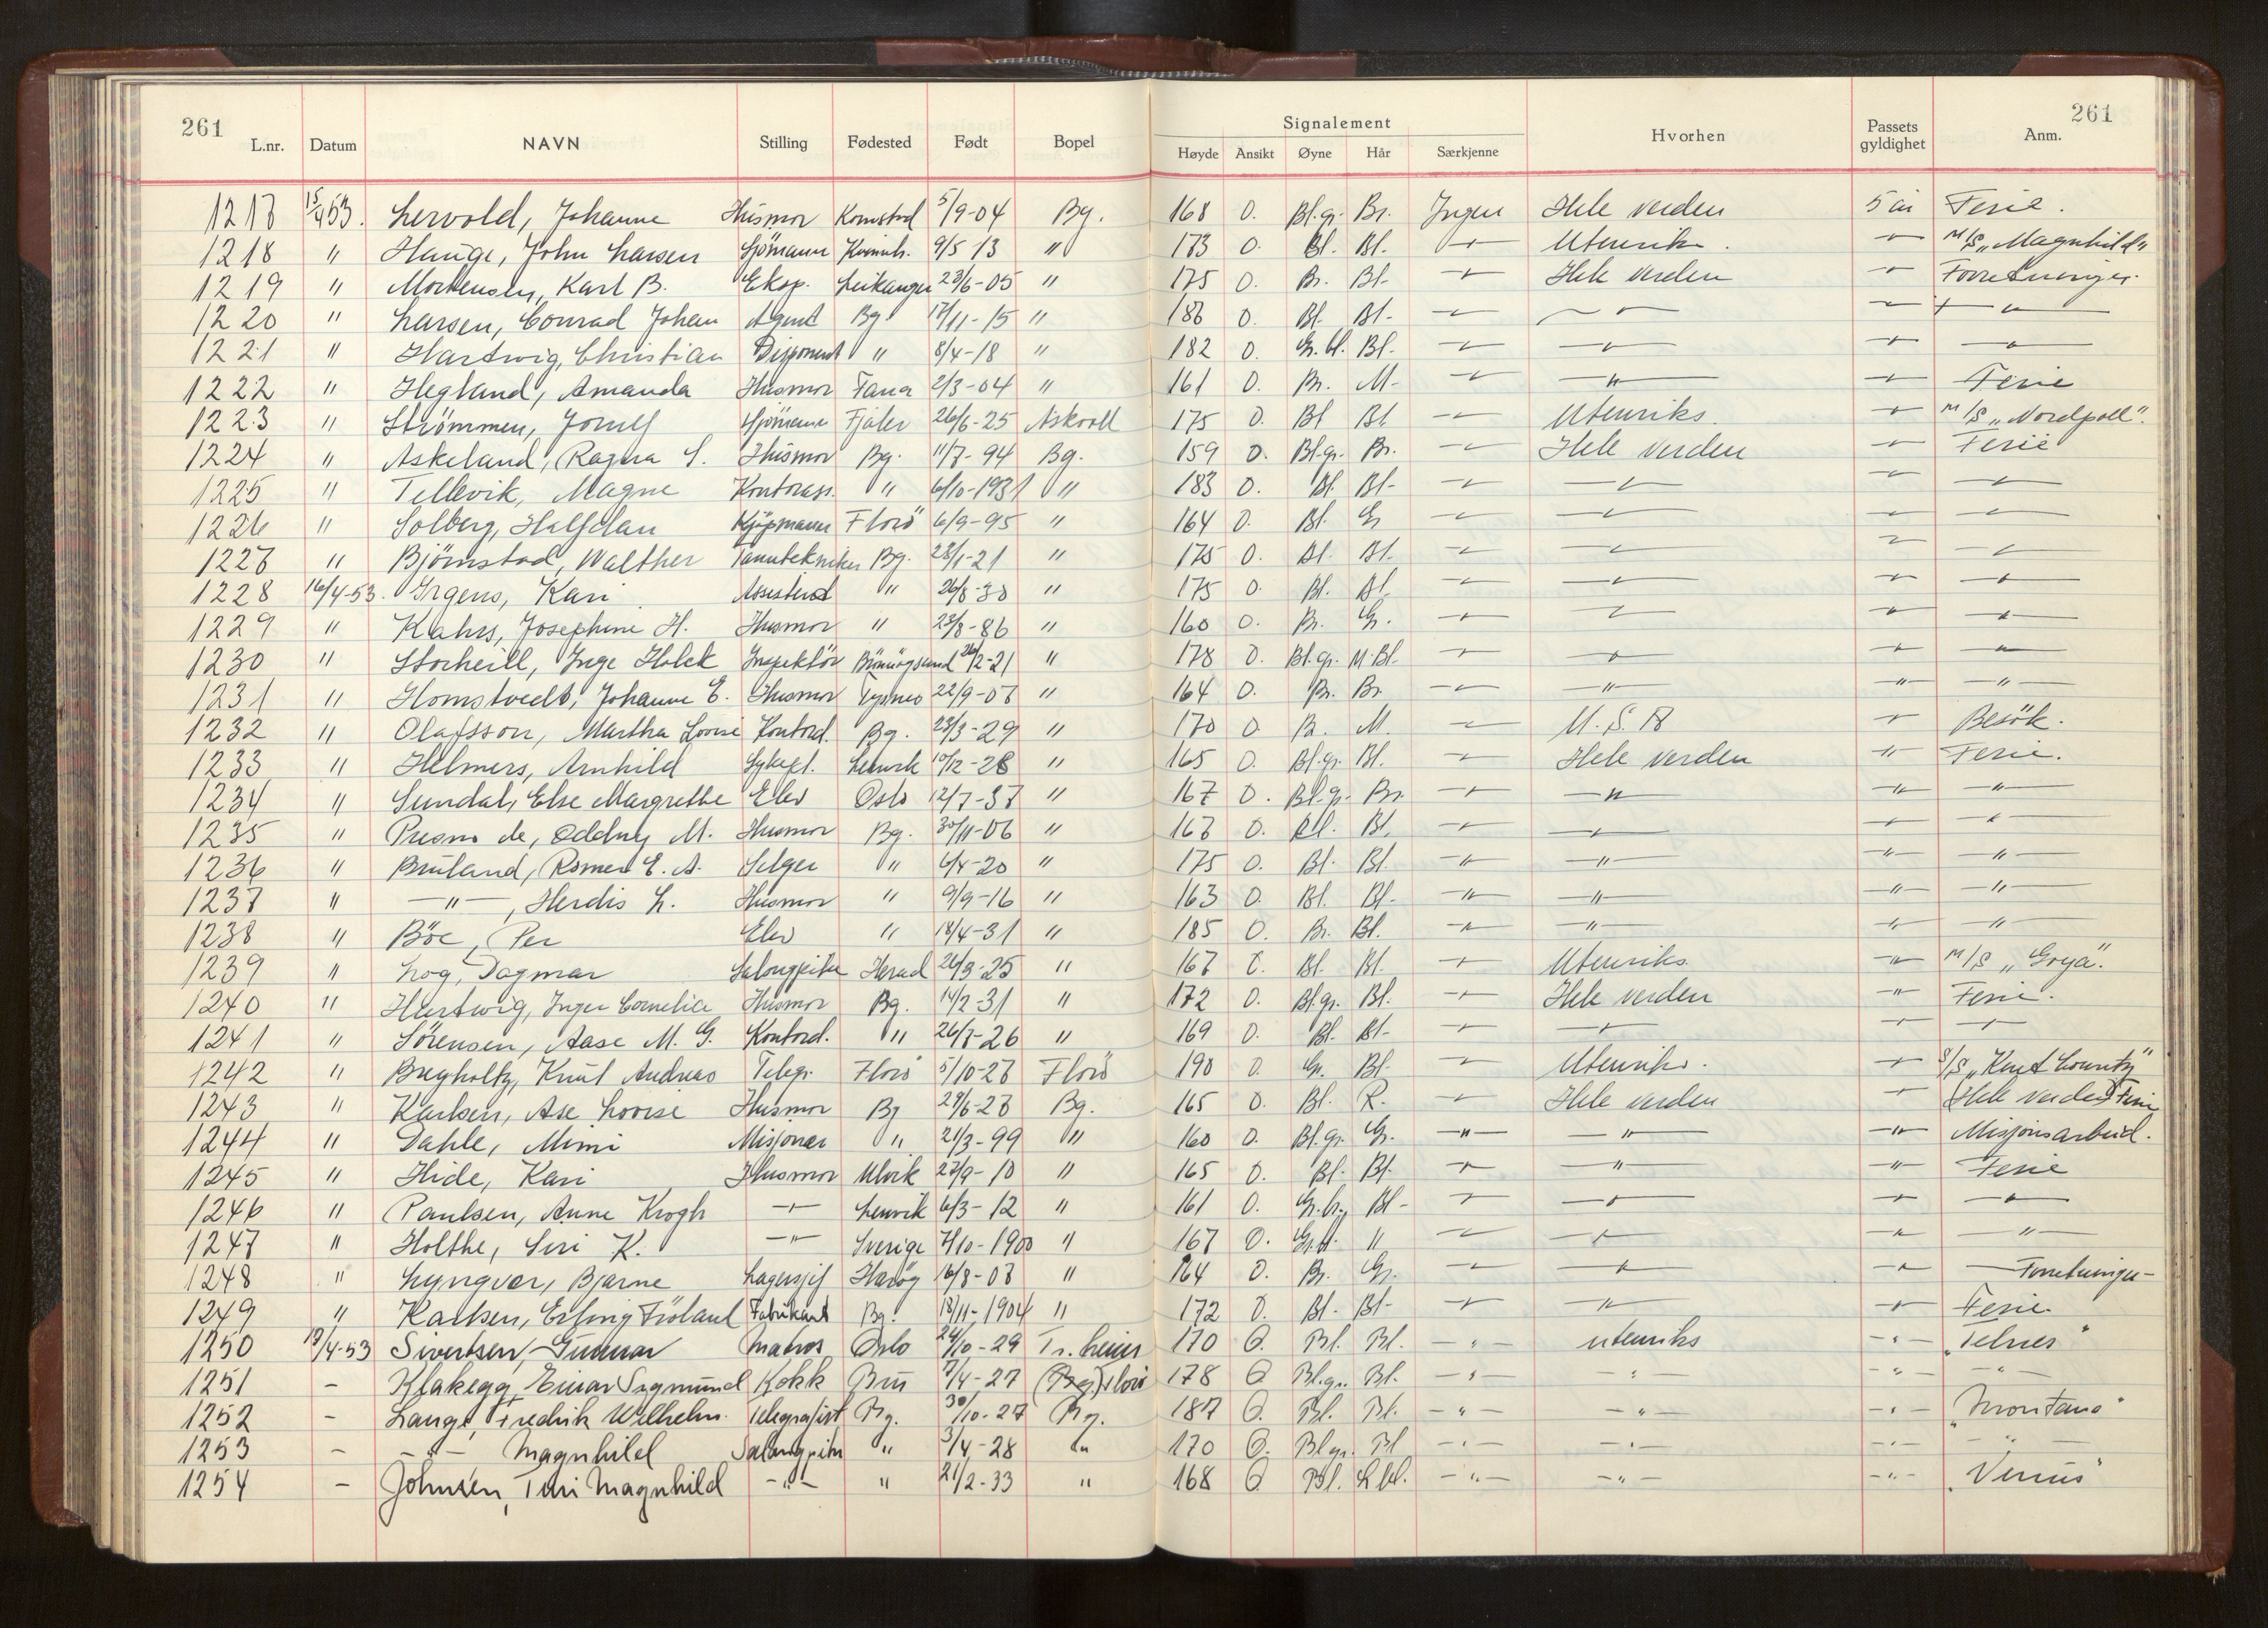 261 261
Signalement
L.nr. Datum NAVN Stilling Fødested Født Bopel Høyde Ansikt Øyne Hår Særkjenne Hvorhen Passets gyldighet Anm.
1217 15/4 53. Lervold, Johanne Husmor 5/9-04 Bg. 168 O. Bl.gr. Br. Ingen Hele verden 5 år Ferie.
1218 " Hauge, John Larsen Sjömann 9/5 13 " 173 O. Bl. Bl. -"- Utenriks. -"- M/S „Magnhild"
1219 " Mortensen, Karl B. Eksp. Leikanger 23/6-05 " 175 O. Br. Bl. -"- Hele verden -"- Forretninger.
1220 " Larsen, Conrad Johan Agent Bg. 17/11-15 " 186 O. Bl. Bl. -"- -"- -"- -"-
1221 " Hartwig, Christian Disponent " 8/4-18 " 182 O. Gr.bl. Bl. -"- -"- -"- -"-
1222 " Hegland, Amanda Husmor Fana 2/3-04 " 161 O. Br. M. -"- -"- -"- Ferie
1223 " Strömmen, Sjömann Fjaler 26/6-25 Askvoll 175 O. Bl Bl -"- Utenriks. -"- M/S „Nordpoll".
1224 " Askeland, Ragna S. Husmor Bg. 11/7-94 Bg. 159 O. Bl.gr. Br. -"- Hele verden -"- Ferie
1225 " Tellevik, Magne Kontorass. " 6/10-1931 " 183 O. Bl. Bl. -"- -"- -"- -"-
1226 " Solberg, Halfdan Kjöpmann Florö 6/9-95 " 164 O. Bl. Gr -"- -"- -"- -"-
1227 " Björnstad, Walther Tanntekniker Bg. 28/1-21 " 175 O. Bl. Bl. -"- -"- -"- -"-
1228 16/4-53. Irgens, Kari Assistent " 26/8-30 " 175 O. Bl. Bl. -"- -"- -"- -"-
1229 " Kahrs, Josephine H. Husmor " 23/8-86 " 160 O. Br. Gr. -"- -"- -"- -"-
1230 " Storheill, Inge Holck Inspektör Brönnöysund 26/2-21 " 178 O. Bl.gr. M.Bl. -"- -"- -"- -"-
1231 " Homstvedt, Johanne E. Husmor Tysnes 22/9-07 " 164 O. Br. Br. -"- -"- -"- -"-
1232 " Olafsson, Martha Lovise Kontord. Bg. 23/3-29 " 170 O. Br. M. -"- U.S.A -"- Besök.
1233 " Helmers, Arnhild Sykepl. Lenvik 10/12-28 " 165 O. Bl.gr. Bl. -"- Hele verden -"- Ferie.
1234 " Sundal, Else Margrethe Elev Oslo 12/7-37 " 167 O. Bl.gr. Br. -"- -"- -"- -"-
1235 " Presno de, Oddny M. Husmor Bg. 30/11-06 " 167 O. Bl. Bl. -"- -"- -"- -"-
1236 " Bruland, E. A. Selger " 6/4-20 " 175 O. Bl. Bl. -"- -"- -"- -"-
1237 " -"-, Herdis L. Husmor " 9/9-16 " 163 O. Bl. Bl. -"- -"- -"- -"-
1238 " Böe, Per Elev " 18/4-31 " 185 O. Br. Bl. -"- -"- -"- -"-
1239 " Log, Dagmar Salongpike Herad 26/3-25 " 167 O. Bl. Bl. -"- Utenriks. -"- M/S „Goya".
1240 " Hartwig, Inger Cornelia Husmor Bg. 14/2-31 " 172 O. Bl.gr. Bl. -"- Hele verden -"- Ferie.
1241 " Sörensen, Aase M. G. Kontord. " 26/7-26 " 169 O. Bl. Bl. -"- -"- -"- -"-
1242 " Knut Andreas Telegr. Florö 5/10-27 Florö 190 O. Gr. Bl. -"- Utenriks. -"- S/S „Kent County"
1243 " Karlsen, Åse Lovise Husmor Bg 29/6-27 Bg. 165 O. Bl. R. -"- Hele verden -"- (Hele verden) Ferie
1244 " Dahle, Mimi Misjonær " 21/3-99 " 160 O. Bl.gr. Gr. -"- -"- -"- Misjonsarbeid.
1245 " Hide, Kari Husmor Ulvik 27/9-10 " 165 O. Bl. Bl. -"- -"- -"- Ferie
1246 " Paulsen, Anne Krogh -"- Lenvik 6/3-12 " 161 O. Gr.br. Bl. -"- -"- -"- -"-
1247 " Holthe, Siri K. -"- Sverige 7/10-1900 " 167 O. Gr.bl. " -"- -"- -"- -"-
1248 " Lyngvær, Bjarne Lagersjef 16/8-07 " 164 O. Br. Gr. -"- -"- -"- Forretninger
1249 " Karlsen, Erling Fröland Fabrikant Bg. 18/11-1904 " 172 O. Bl. Bl. -"- -"- -"- Ferie
1250 17/4-53 Sivertsen, Gunnar Matros Oslo 24/10-29 Tr.heim 170 O. Bl. Bl. -"- utenriks -"- „Telnes"
1251 - Klakegg, Einar Sigmund Kokk Bru 7/4-27 (Bg.) Florö 178 O Bl.gr. Bl. -"- -"- -"- -"-
1252 - Lange, Fredrik Wilhelm. Telegrafist Bg. 30/10-27 Bg. 187 O. Bl. Bl. -"- -"- -"- „Montana"
1253 - -"- Magnhild Salongpike " 3/4-28 " 170 O. Bl.gr. Bl -"- -"- -"- -"-
1254 - Johnsen, Turi Magnhild -"- " 21/2-33 " 168 O Bl. L.bl. -"- -"- -"- „Venus"